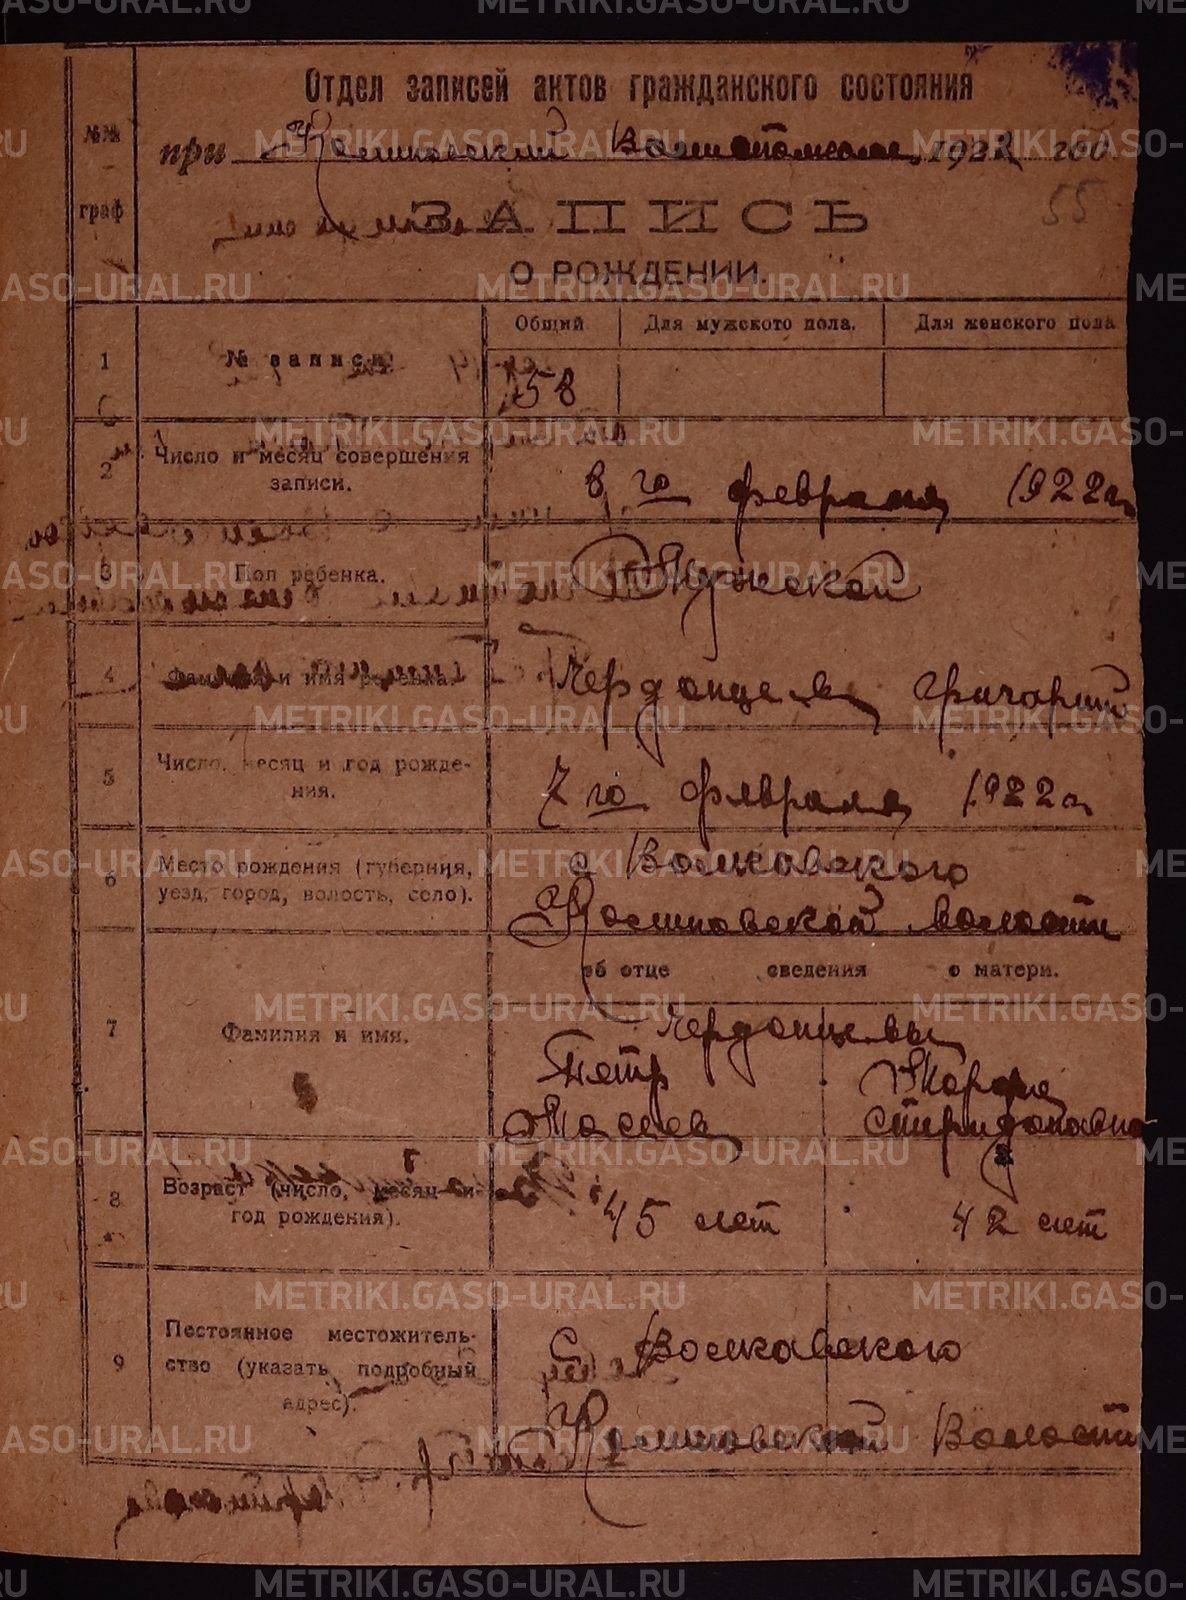 Отдел записей актов гражданского состояния
при Колчиновский Волисполкоме 1922 год
55
№№ граф
ЗАПИСЬ
О РОЖДЕНИИ.
Общий Для мужского пола. Для женского пола
1 № записи 58
2 Число и месяц совершения записи. 8 го февраля 1922 г.
3 Пол ребенка. Мужской
4 Фамилия и имя ребенка. Чердонцев Григорий
5 Число, месяц и год рождения. 7 го февраля 1922 г.
6 Место рождения (губерния, уезд, город, волость, село). с Волковского
волости
об отце сведения о матери.
7 Фамилия и имя. Чердонцевы
Петр Марфа
Спиридоновна
8 Возраст (число, месяц и год рождения). 45 лет 42 лет
9 Постоянное местожительство (указать подробный адрес). С Волковского
Волости
METRIKI.GASO-URAL.RU